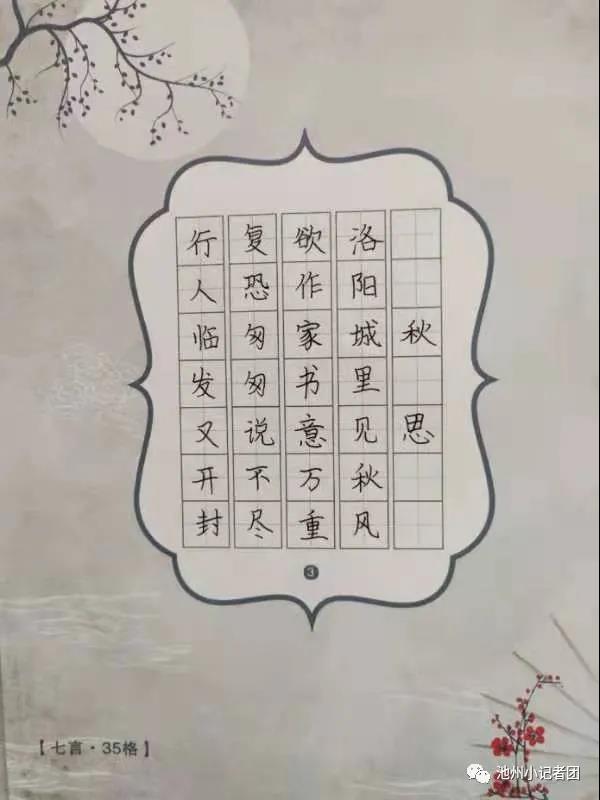 秋思
洛阳城里见秋风
欲作家书意万重
复恐匆匆说不尽
行人临发又开封
3
【七言·35格】
池州小记者团